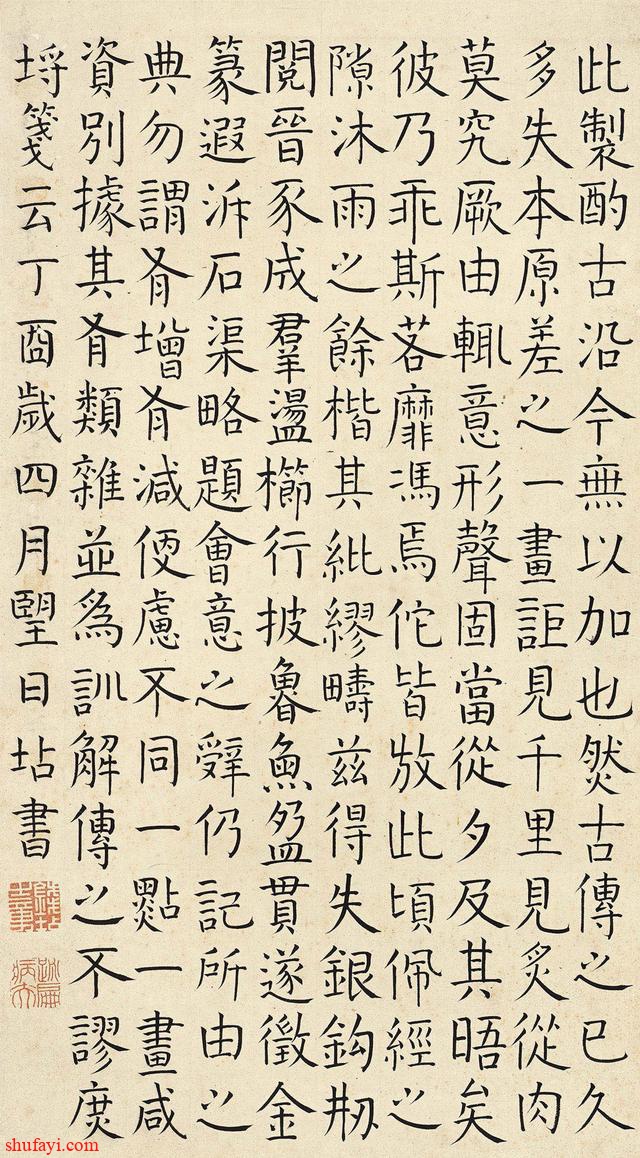 此製酌古沿今無以加也然古傳之已久
多失本原差之一畫詎見千里見炙從肉
莫究厥由輒意形聲固當從夕及其晤矣
彼乃乖斯茖靡馮焉佗皆放此頃佩經之
隙沐雨之餘楷其紕繆疇茲得失銀鈎刱
閱晉豕成羣盪櫛行披魯魚盈貫遂徵金
篆遐泝石渠略題會意之辤仍記所由之
典勿謂有增有減便慮不同一點一畫咸
資別據其有類雜並為訓解傳之不謬庶
埒箋云丁酉歲四月朢日坫書
shufayi.com